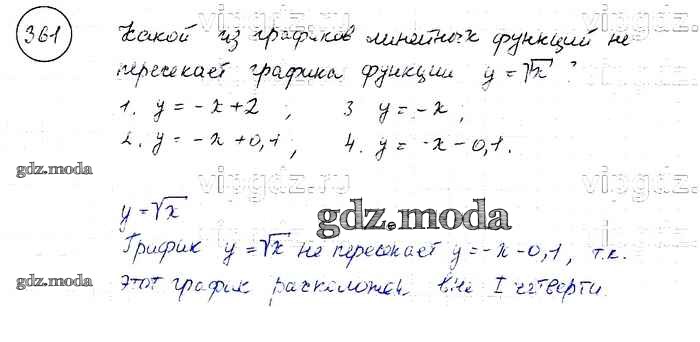 361
Какой из графиков линейных функций не
пересекает графика функции y = √x ?
1. y = -x+2 ; 3 y = -x ;
2. y = -x+0,1 ; 4. y = -x-0,1.
y = √x
График y = √x не пересекает y = -x-0,1, т.к.
этот график расположен вне I четверти.
vipgdz.ru
vipgdz.ru
vipgdz.ru
gdz.moda
gdz.moda
gdz.moda